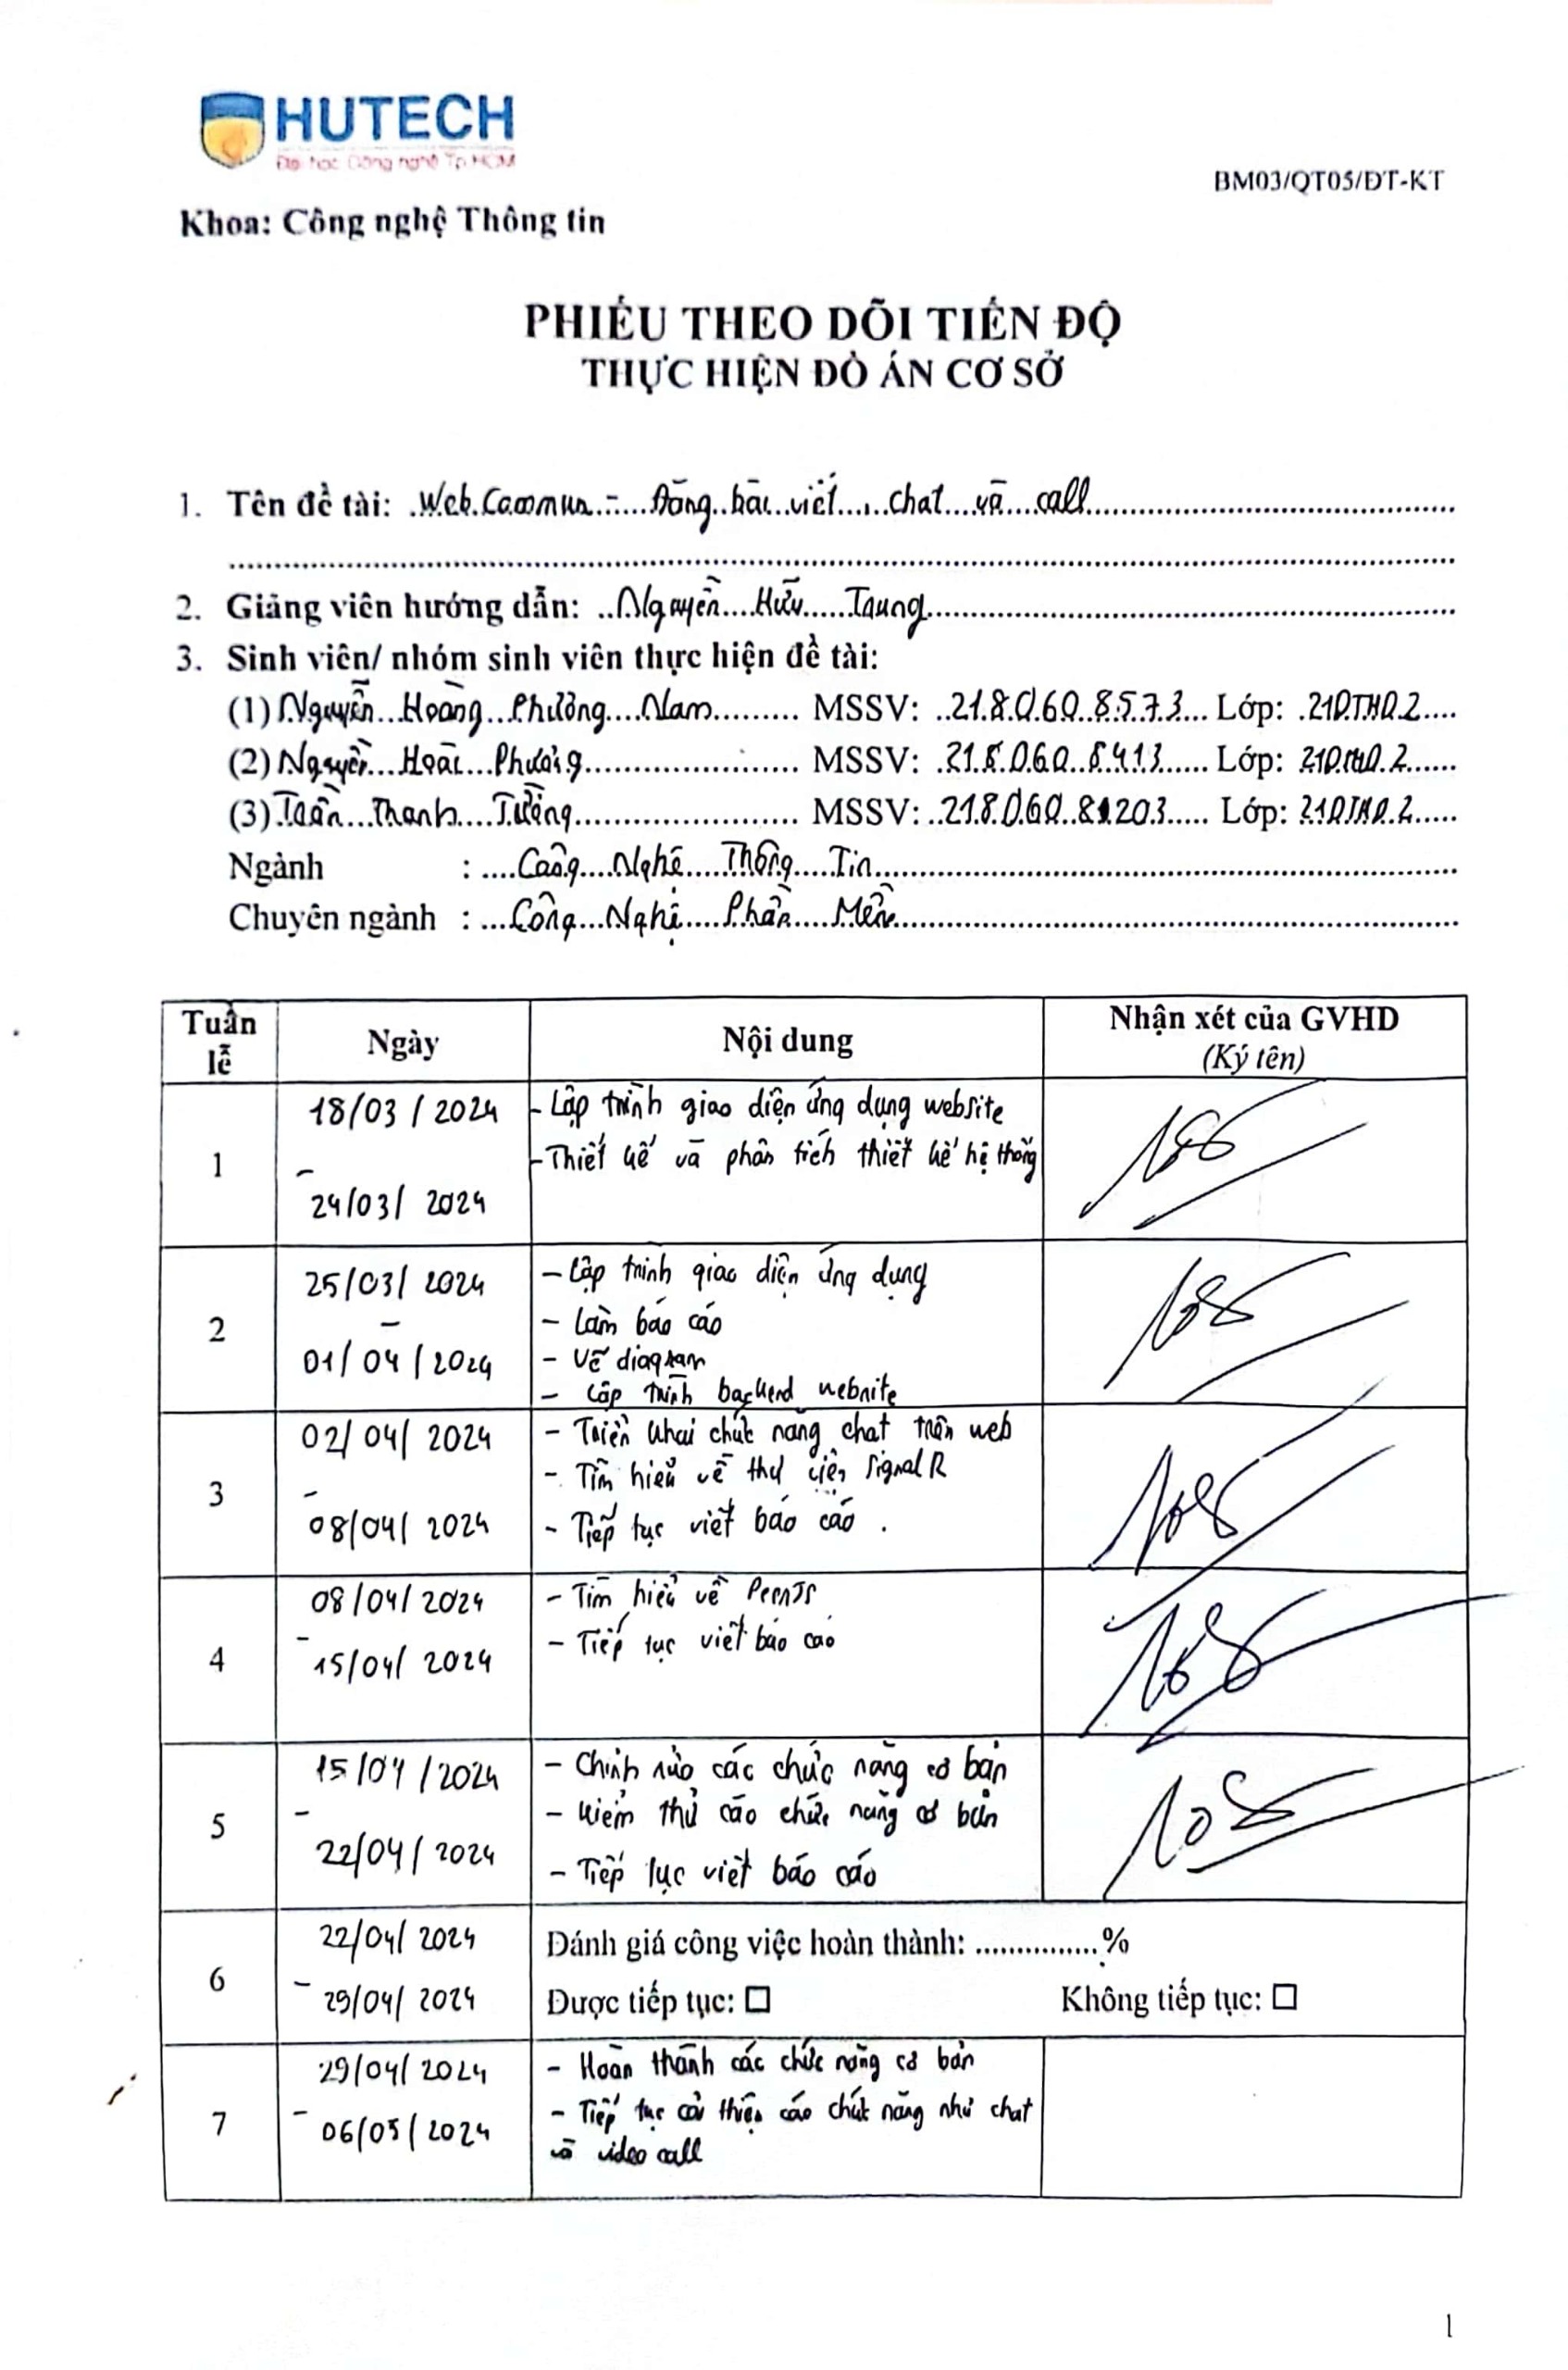 HUTECH
Đại học Công nghệ Tp.HCM
BM03/QT05/ĐT-KT
Khoa: Công nghệ Thông tin
PHIẾU THEO DÕI TIẾN ĐỘ
THỰC HIỆN ĐỒ ÁN CƠ SỞ
1. Tên đề tài: Web Commun - Đăng bài viết, chat và call
2. Giảng viên hướng dẫn: Nguyễn Hữu Trung
3. Sinh viên/ nhóm sinh viên thực hiện đề tài:
(1) Nguyễn Hoàng Phương Nam MSSV: 2180608573 Lớp: 21DTHD2
(2) Nguyễn Hoài Phương MSSV: 2180608413 Lớp: 21DTHD2
(3) Trần Thanh Tường MSSV: Lớp: 21DTHD2
Ngành : Công Nghệ Thông Tin
Chuyên ngành : Công Nghệ Phần Mềm
Tuần lễ Ngày Nội dung Nhận xét của GVHD
(Ký tên)
1
18/03/2024
-
24/03/2024
- Lập trình giao diện ứng dụng website
- Thiết kế và phân tích thiết kế hệ thống
2
25/03/2024
-
01/04/2024
- Lập trình giao diện ứng dụng
- Làm báo cáo
- Vẽ diagram
- Lập trình backend website
3
02/04/2024
-
08/04/2024
- Triển khai chức năng chat trên web
- Tìm hiểu về thư viện SignalR
- Tiếp tục viết báo cáo.
4
08/04/2024
-
15/04/2024
- Tìm hiểu về PeerJS
- Tiếp tục viết báo cáo
5
15/04/2024
-
22/04/2024
- Chỉnh sửa các chức năng cơ bản
- Kiểm thử các chức năng cơ bản
- Tiếp tục viết báo cáo
6
22/04/2024
-
29/04/2024
Đánh giá công việc hoàn thành: ...............%
Được tiếp tục: ☐ Không tiếp tục: ☐
7
29/04/2024
-
06/05/2024
- Hoàn thành các chức năng cơ bản
- Tiếp tục cải thiện các chức năng như chat
và video call
1